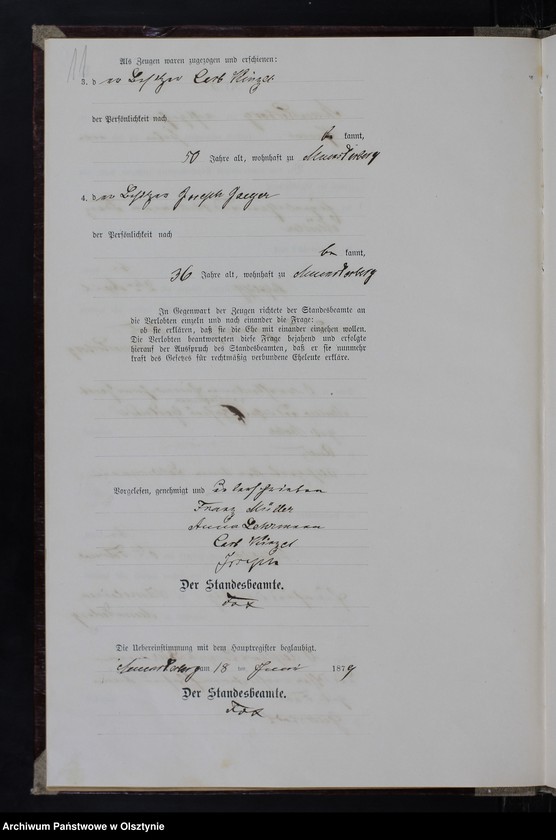 11
Als Zeugen waren zugezogen und erschienen:
3. der Besitzer Carl Kinzel
der Persönlichkeit nach
be kannt,
50 Jahre alt, wohnhaft zu Muensterberg
4. der Besitzer Joseph Jaeger
der Persönlichkeit nach
be kannt,
36 Jahre alt, wohnhaft zu Muensterberg
In Gegenwart der Zeugen richtete der Standesbeamte an
die Verlobten einzeln und nach einander die Frage:
ob sie erklären, daß sie die Ehe mit einander eingehen wollen.
Die Verlobten beantworteten diese Frage bejahend und erfolgte
hierauf der Ausspruch des Standesbeamten, daß er sie nunmehr
kraft des Gesetzes für rechtmäßig verbundene Eheleute erkläre.
Vorgelesen, genehmigt und unterschrieben
Franz Müller
Anna Lehrmann
Carl Kinzel
Joseph
Der Standesbeamte.
Fox
Die Uebereinstimmung mit dem Hauptregister beglaubigt.
Muensterberg am 18 ten Juni 1879
Der Standesbeamte.
Fox
Archiwum Państwowe w Olsztynie